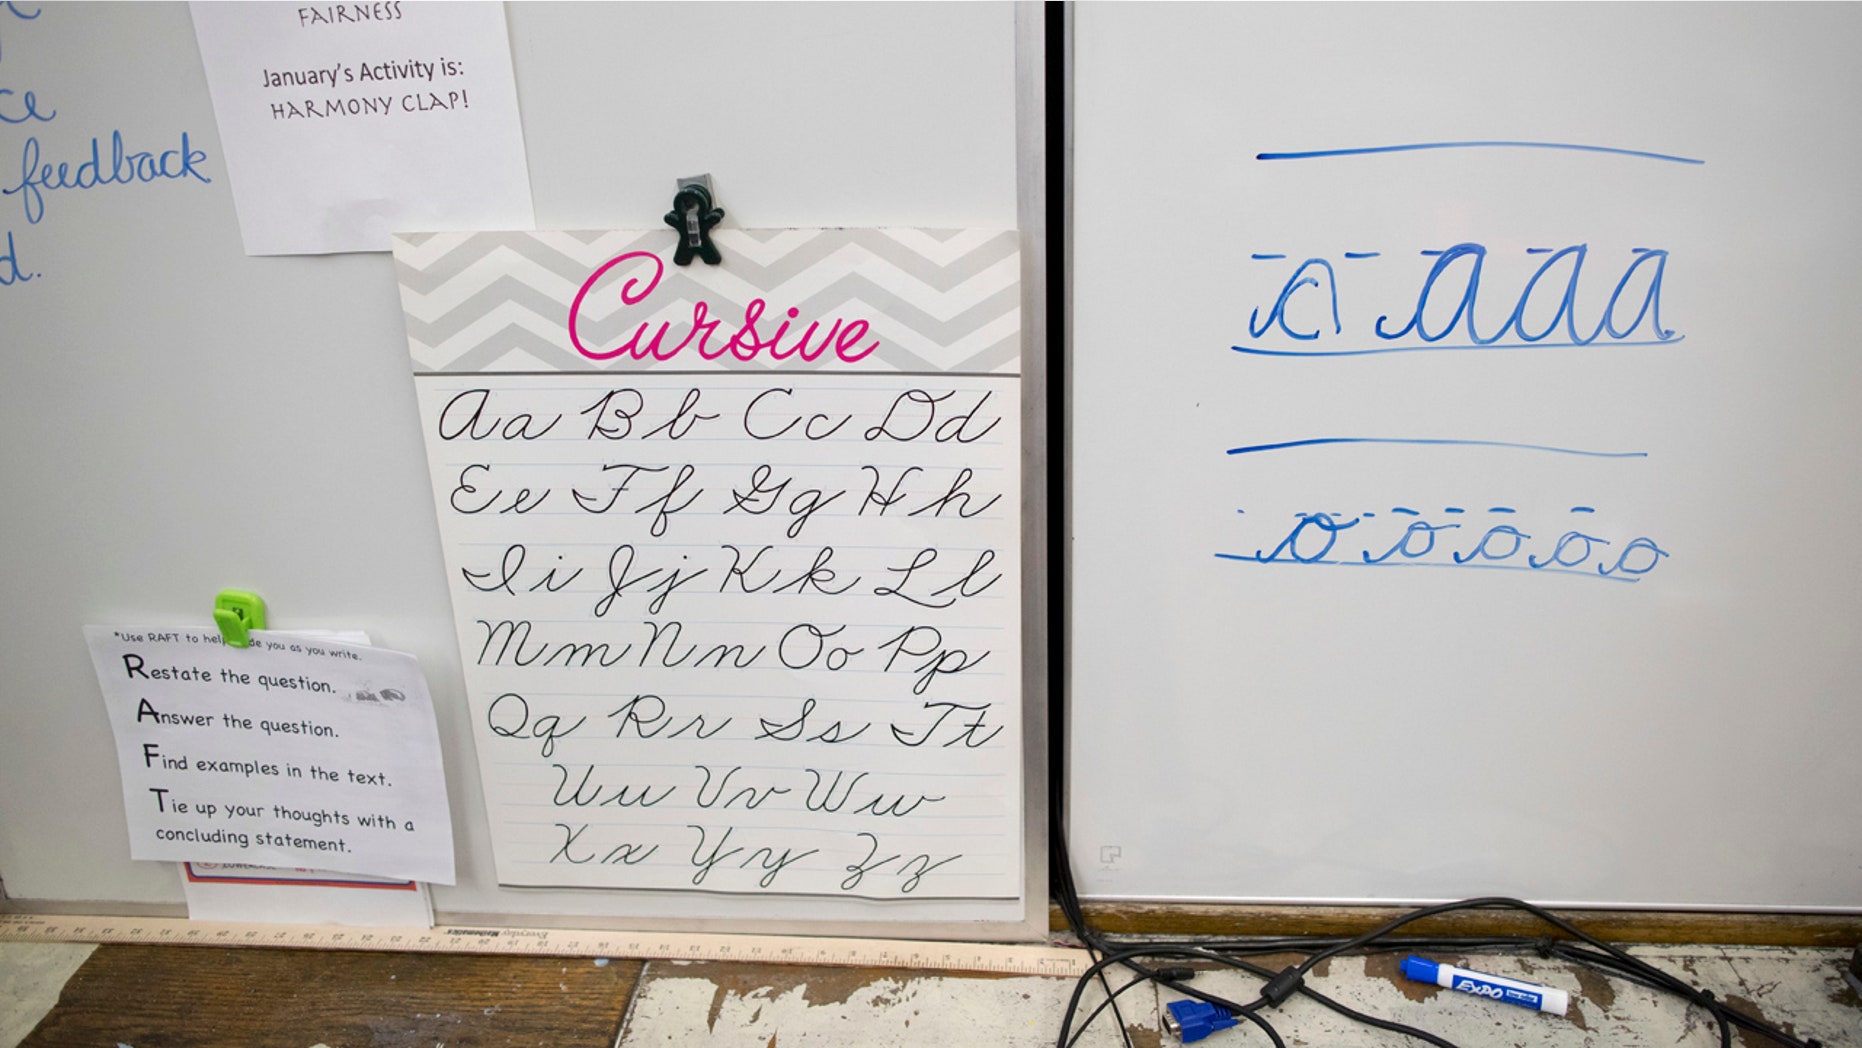 feedback
d.
FAIRNESS
January's Activity is:
HARMONY CLAP!
Cursive
Aa Bb Cc Dd
Ee Ff Gg Hh
Ii Jj Kk Ll
Mm Nn Oo Pp
Qq Rr Ss Tt
Uu Vv Ww
Xx Yy Zz
*Use RAFT to help you as you write.
Restate the question.
Answer the question.
Find examples in the text.
Tie up your thoughts with a
concluding statement.
a a a a
o o o o o
Everyday
Mathematics
EXPO